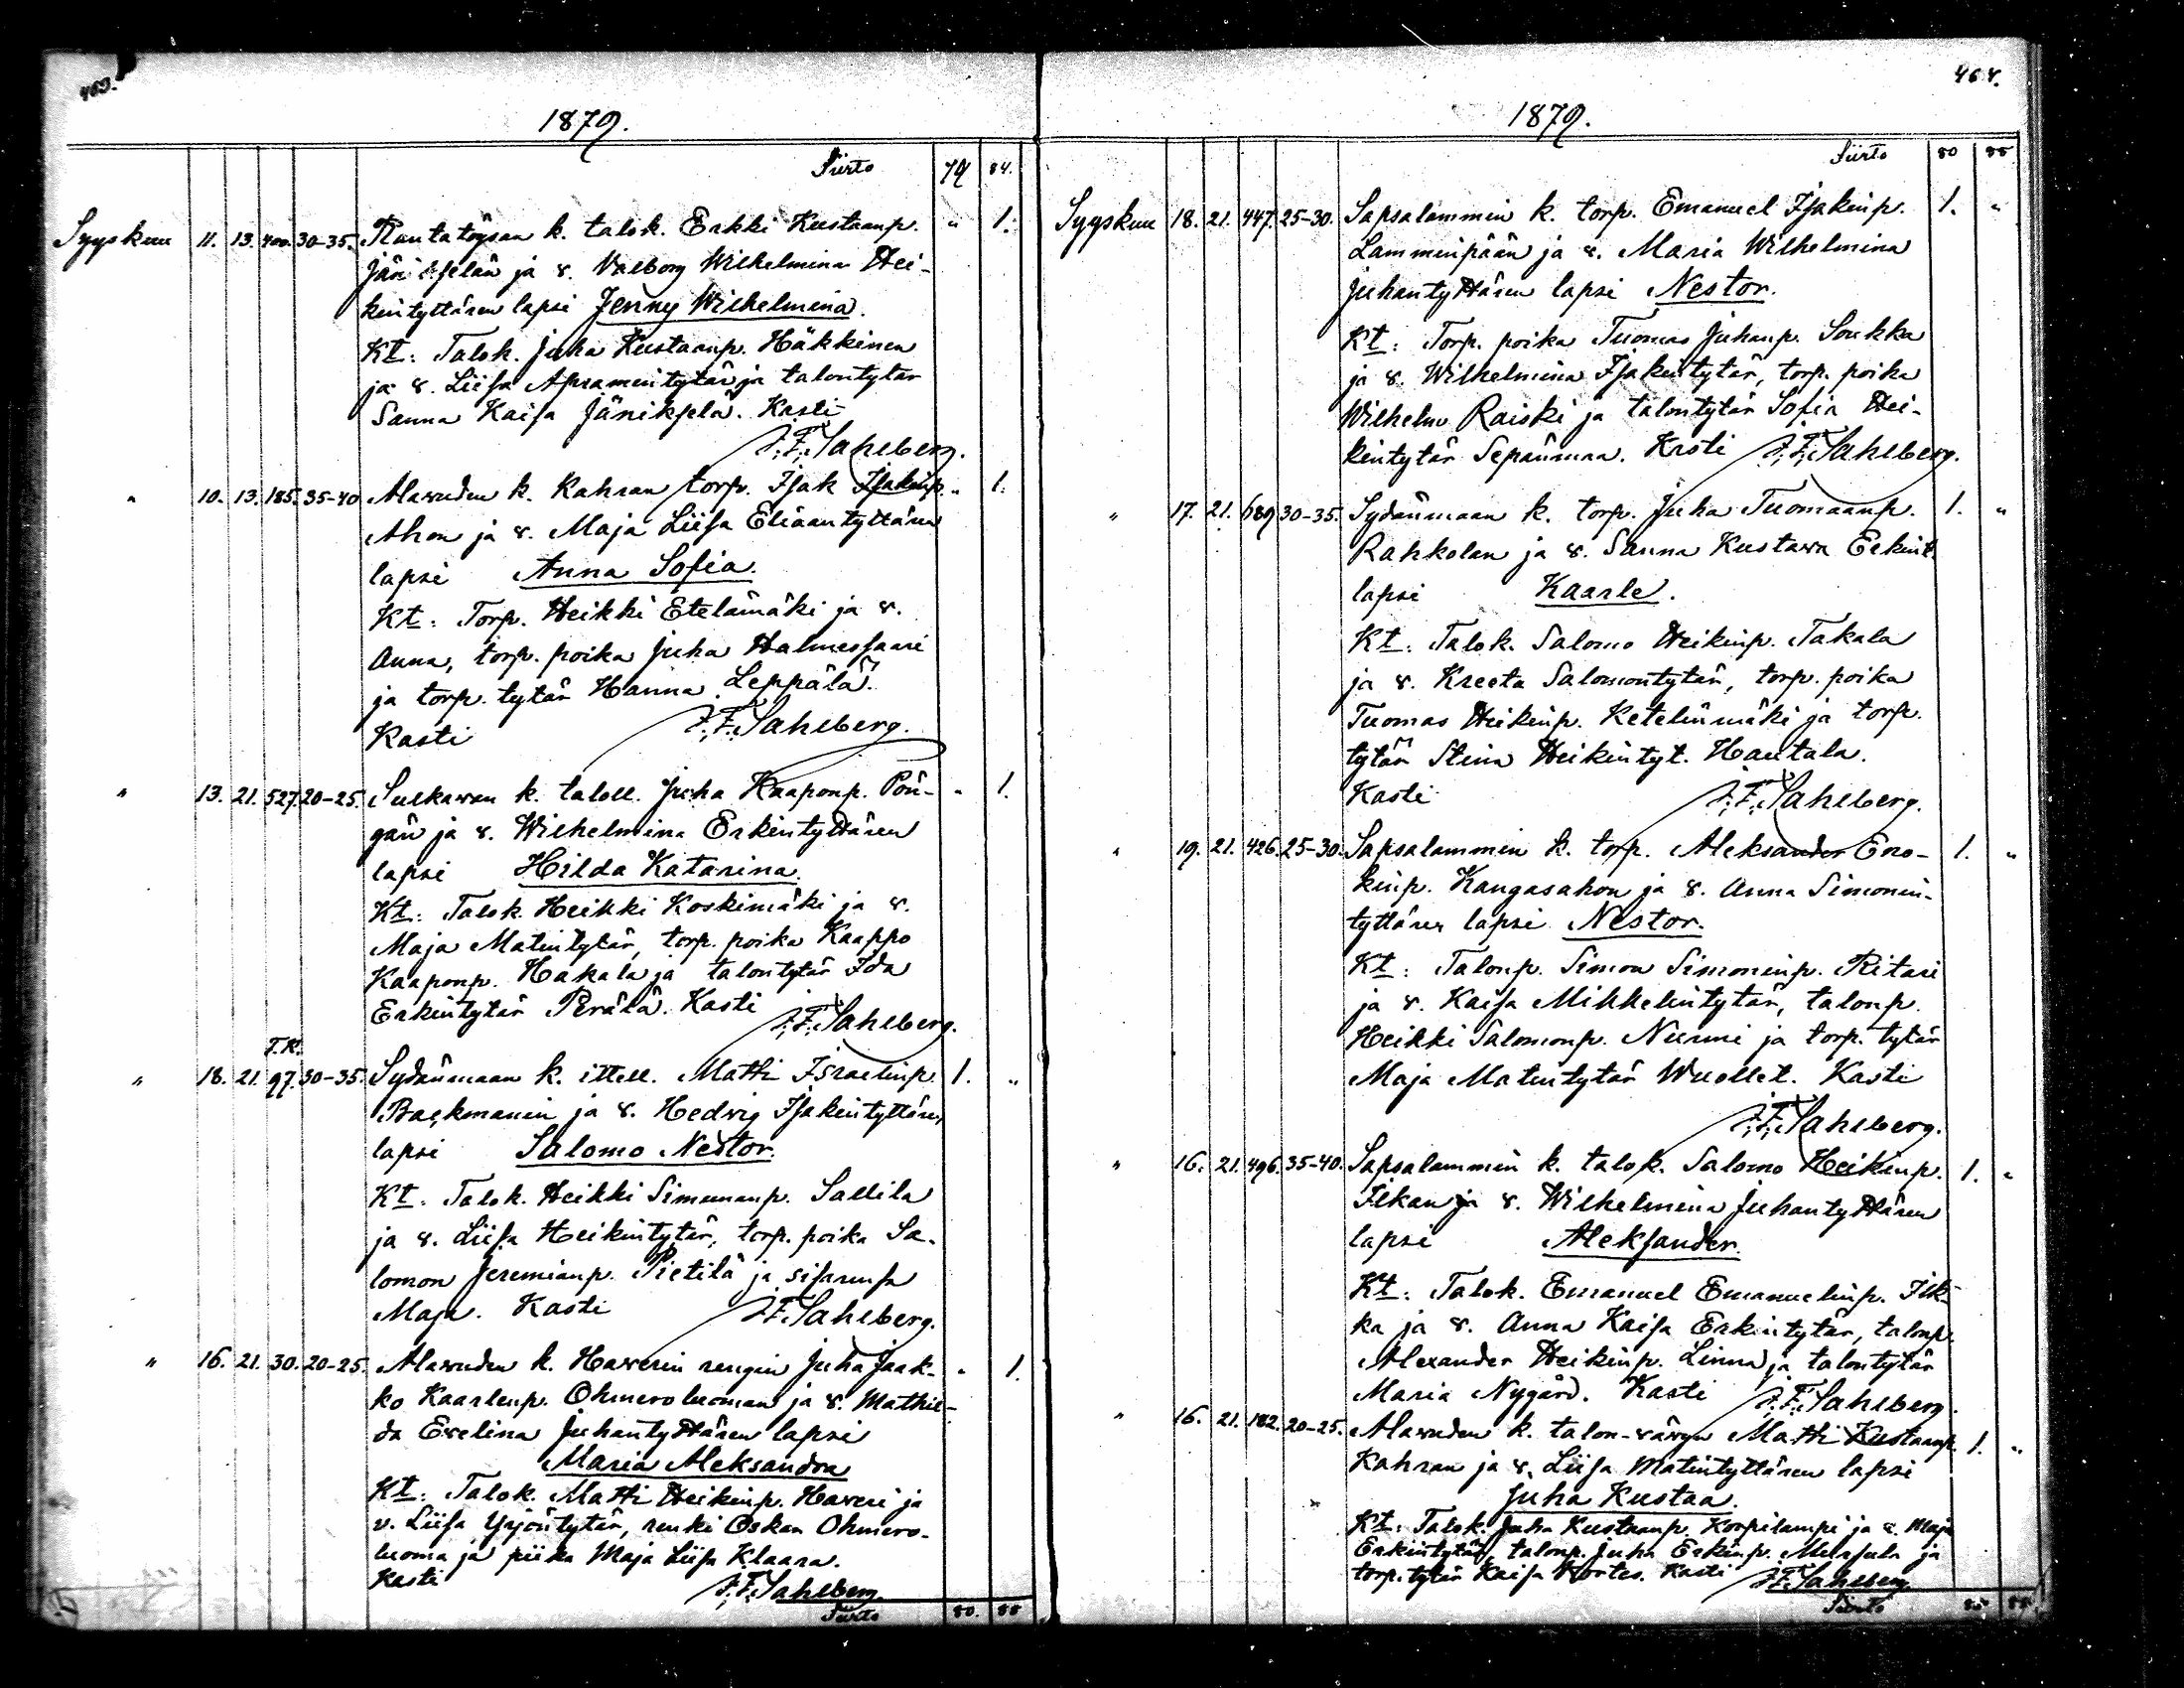 463.
1879.
Siirto 79 84.
Syyskuu 11. 13. 400. 30-35. Rantatöysän k. talok. Erkki Kustaanp. " 1.
Jänikselän ja v. Valborg Wilhelmina Hei-
kintyttären lapsi Jenny Wilhelmina.
Kt: Talok. Juha Kustaanp. Häkkinen
ja v. Liisa Apramintytär ja talontytär
Sanna Kaisa Jänikselä. Kasti
J. F. Sahlberg.
" 10. 13. 185. 35-40 Alavuden k. Kahran torp. Isak Isakinp. " 1.
Ahon ja v. Maja Liisa Eliaantyttären
lapsi Anna Sofia.
Kt: Torp. Heikki Etelämäki ja v.
Anna, torp. poika Juha Halmessaari
ja torp. tytär Hanna Leppälä.
Kasti J. F. Sahlberg.
" 13. 21. 527. 20-25. Sulkavan k. taloll. Juha Kaaponp. Pön- " 1.
gän ja v. Wilhelmina Erkintyttären
lapsi Hilda Katarina.
Kt: Talok. Heikki Koskimäki ja v.
Maja Matintytär, torp. poika Kaappo
Kaaponp. Hakala ja talontytär Ida
Erkintytär Perälä. Kasti
J. F. Sahlberg.
T.K.
" 18. 21. 97. 30-35. Sydänmaan k. ittell. Matti Israelinp. 1. "
Backmanin ja v. Hedvig Isakintyttären
lapsi Salomo Nestor.
Kt: Talok. Heikki Simunanp. Sallila
ja v. Liisa Heikintytär, torp. poika Sa-
lomon Jeremianp. Pietilä ja sisarensa
Maja. Kasti J. F. Sahlberg.
" 16. 21. 30. 20-25. Alavuden k. Haverin rengin Juha Jaak- " 1.
ko Kaarlenp. Ohmeroluoman ja v. Mathil-
da Evelina Juhantyttären lapsi
Maria Aleksandra
Kt: Talok. Matti Heikinp. Haveri ja
v. Liisa Yrjöntytär, renki Oskar Ohmero-
luoma ja piika Maja Liisa Klaara.
Kasti J. F. Sahlberg.
Siirto 80. 88
464.
1879.
Siirto 80 88
Syyskuu 18. 21. 447. 25-30. Sapsalammin k. torp. Emanuel Isakinp. 1. "
Lamminpään ja v. Maria Wilhelmina
Juhantyttären lapsi Nestor.
Kt: Torp. poika Tuomas Juhanp. Soukka
ja v. Wilhelmina Isakintytär, torp. poika
Wilhelm Raiski ja talontytär Sofia Hei-
kintytär Sepänmaa. Kasti J. F. Sahlberg.
" 17. 21. 689 30-35. Sydänmaan k. torp. Juha Tuomaanp. 1. "
Rahkolan ja v. Sanna Kustava Erkint.
lapsi Kaarle.
Kt: Talok. Salomo Heikinp. Takala
ja v. Kreeta Salomontytär, torp. poika
Tuomas Heikinp. Ketelinmäki ja torp.
tytär Stina Heikintyt. Hautala.
Kasti J. F. Sahlberg.
" 19. 21. 426. 25-30. Sapsalammin k. torp. Aleksander Eno- 1. "
kinp. Kangasahon ja v. Anna Simonin-
tyttären lapsi Nestor.
Kt: Talonp. Simon Simoninp. Ritari
ja v. Kaisa Mikkelintytär, talonp.
Heikki Salomonp. Nurmi ja torp. tytär
Maja Matintytär Wuollet. Kasti
J. F. Sahlberg.
" 16. 21. 496. 35-40. Sapsalammin k. talok. Salomo Heikinp. 1. "
Ilkan ja v. Wilhelmina Juhantyttären
lapsi Aleksander.
Kt: Talok. Emanuel Emanuelinp. Ilk-
ka ja v. Anna Kaisa Erkintytär, talonp.
Alexander Heikinp. Linna ja talontytär
Maria Nygård. Kasti J. F. Sahlberg.
" 16. 21. 182. 20-25. Alavuden k. talon-vävyn Matti Kustaanp. 1. "
Kahran ja v. Liisa Matintyttären lapsi
Juha Kustaa.
Kt: Talok. Juha Kustaanp. Korpilampi ja v. Maja
Erkintytär, talonp. Juha Erkinp. ja
torp. tytär Kaisa Kasti J. F. Sahlberg
Siirto